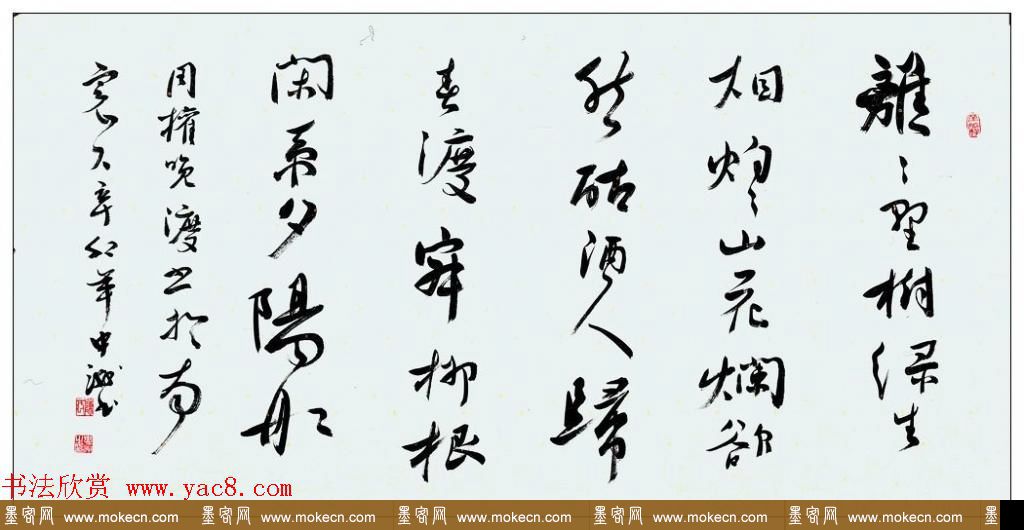 離〻野樹绿生
烟灼〻山花爛欲
然酤酒人歸
春渡寂柳根
閑系夕陽船
周權晚渡书於南
窓下辛卯年中书
书法欣赏 www.yac8.com
墨客网 www.mokecn.com 墨客网 www.mokecn.com 墨客网 www.mokecn.com 墨客网 www.mokecn.com 墨客网 www.mokecn.com